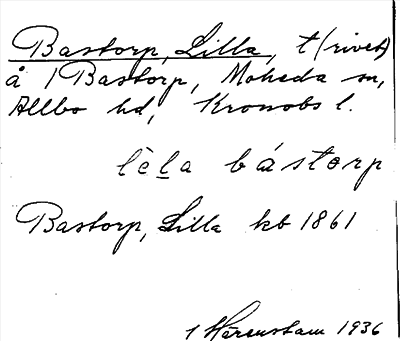 Bastorp, Lilla, t(rivet)
å 1 Bastorp, Moheda sn,
Allbo hd, Kronobs l.
lèl̲a bástorp
Bastorp, Lilla kb 1861
1 Härenstam 1936